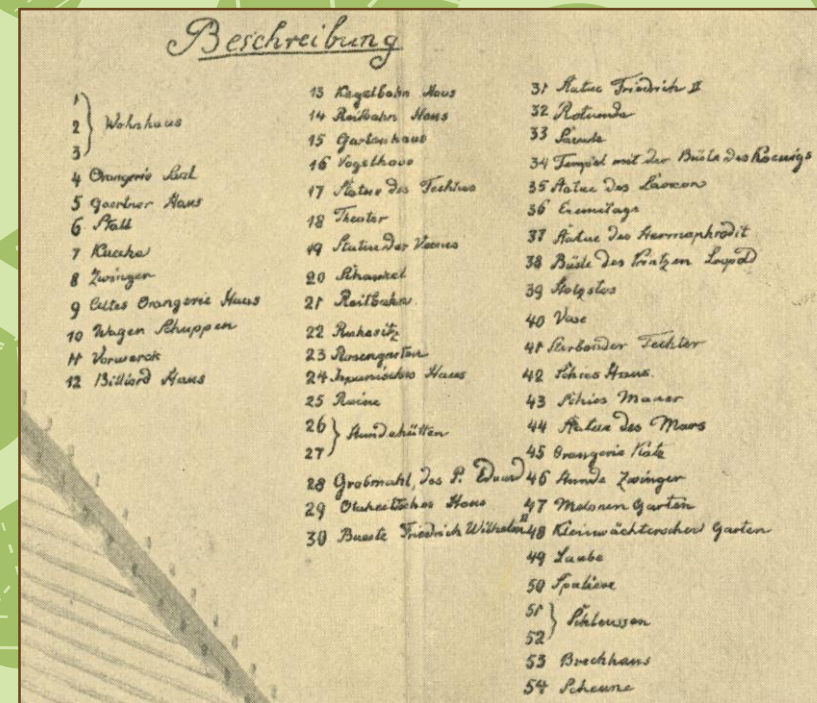 Beschreibung
1
2 } Wohnhaus
3
4 Orangerie Saal
5 Gaertner Haus
6 Stall
7 Kueche
8 Zwinger
9 Altes Orangerie Haus
10 Wagen Schuppen
11 Vorwerck
12 Billiard Haus
13 Kegelbahn Haus
14 Reitbahn Haus
15 Gartenhaus
16 Vogelhaus
17 Statue des Fechters
18 Theater
19 Statue der Venus
20 Schaukel
21 Reitbahn.
22 Ruhesitz
23 Rosengarten
24 Haus
25 Ruine
26 } Hundehütten
27
28 Grabmahl, des P. Eduard
29 Otaheitisches Haus
30 Bueste Friedrich Wilhelm II
31 Statue Friedrich II
32 Rotunda
33
34 Tempel mit der Büste des Koenigs
35 Statue des Laocon
36 Eremitage
37 Statue des Hermaphrodit
38 Büste des Printzen Leopold
39 Holzstos
40 Vase
41 Sterbender Fechter
42 Schies Haus.
43 Schies Mauer
44 Statue des Mars
45 Orangerie
46 Hunde Zwinger
47 Melonen Garten
48 Kleinwächterscher Garten
49 Laube
50 Spaliere
51 } Schleussen
52
53 Brechhaus
54 Scheune